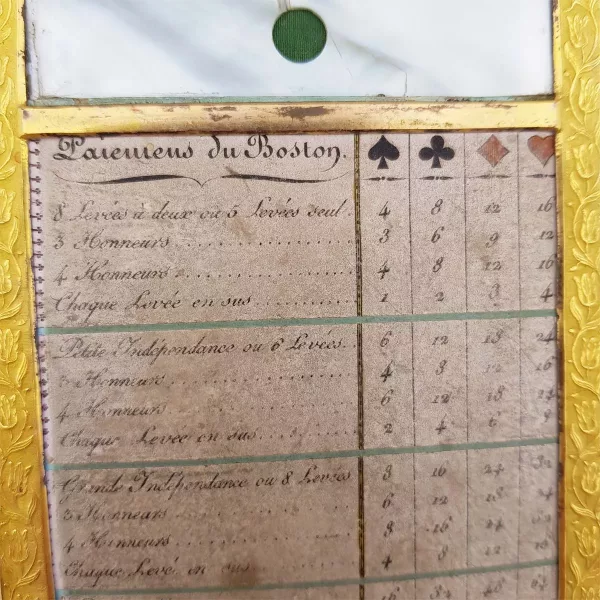 Paiemens du Boston.
8 Levées à deux ou 5 Levées seul. 4 8 12 16
3 Honneurs 3 6 9 12
4 Honneurs 4 8 12 16
Chaque Levée en sus 1 2 3 4
Petite Indépendance ou 6 Levées 6 12 18 24
3 Honneurs 4 8 12 16
4 Honneurs 6 12 18 24
Chaque Levée en sus 2 4 6 8
Grande Indépendance ou 8 Levées 8 16 24 32
3 Honneurs 6 12 18 24
4 Honneurs 8 16 24 32
Chaque Levé en sus 4 8 12 16